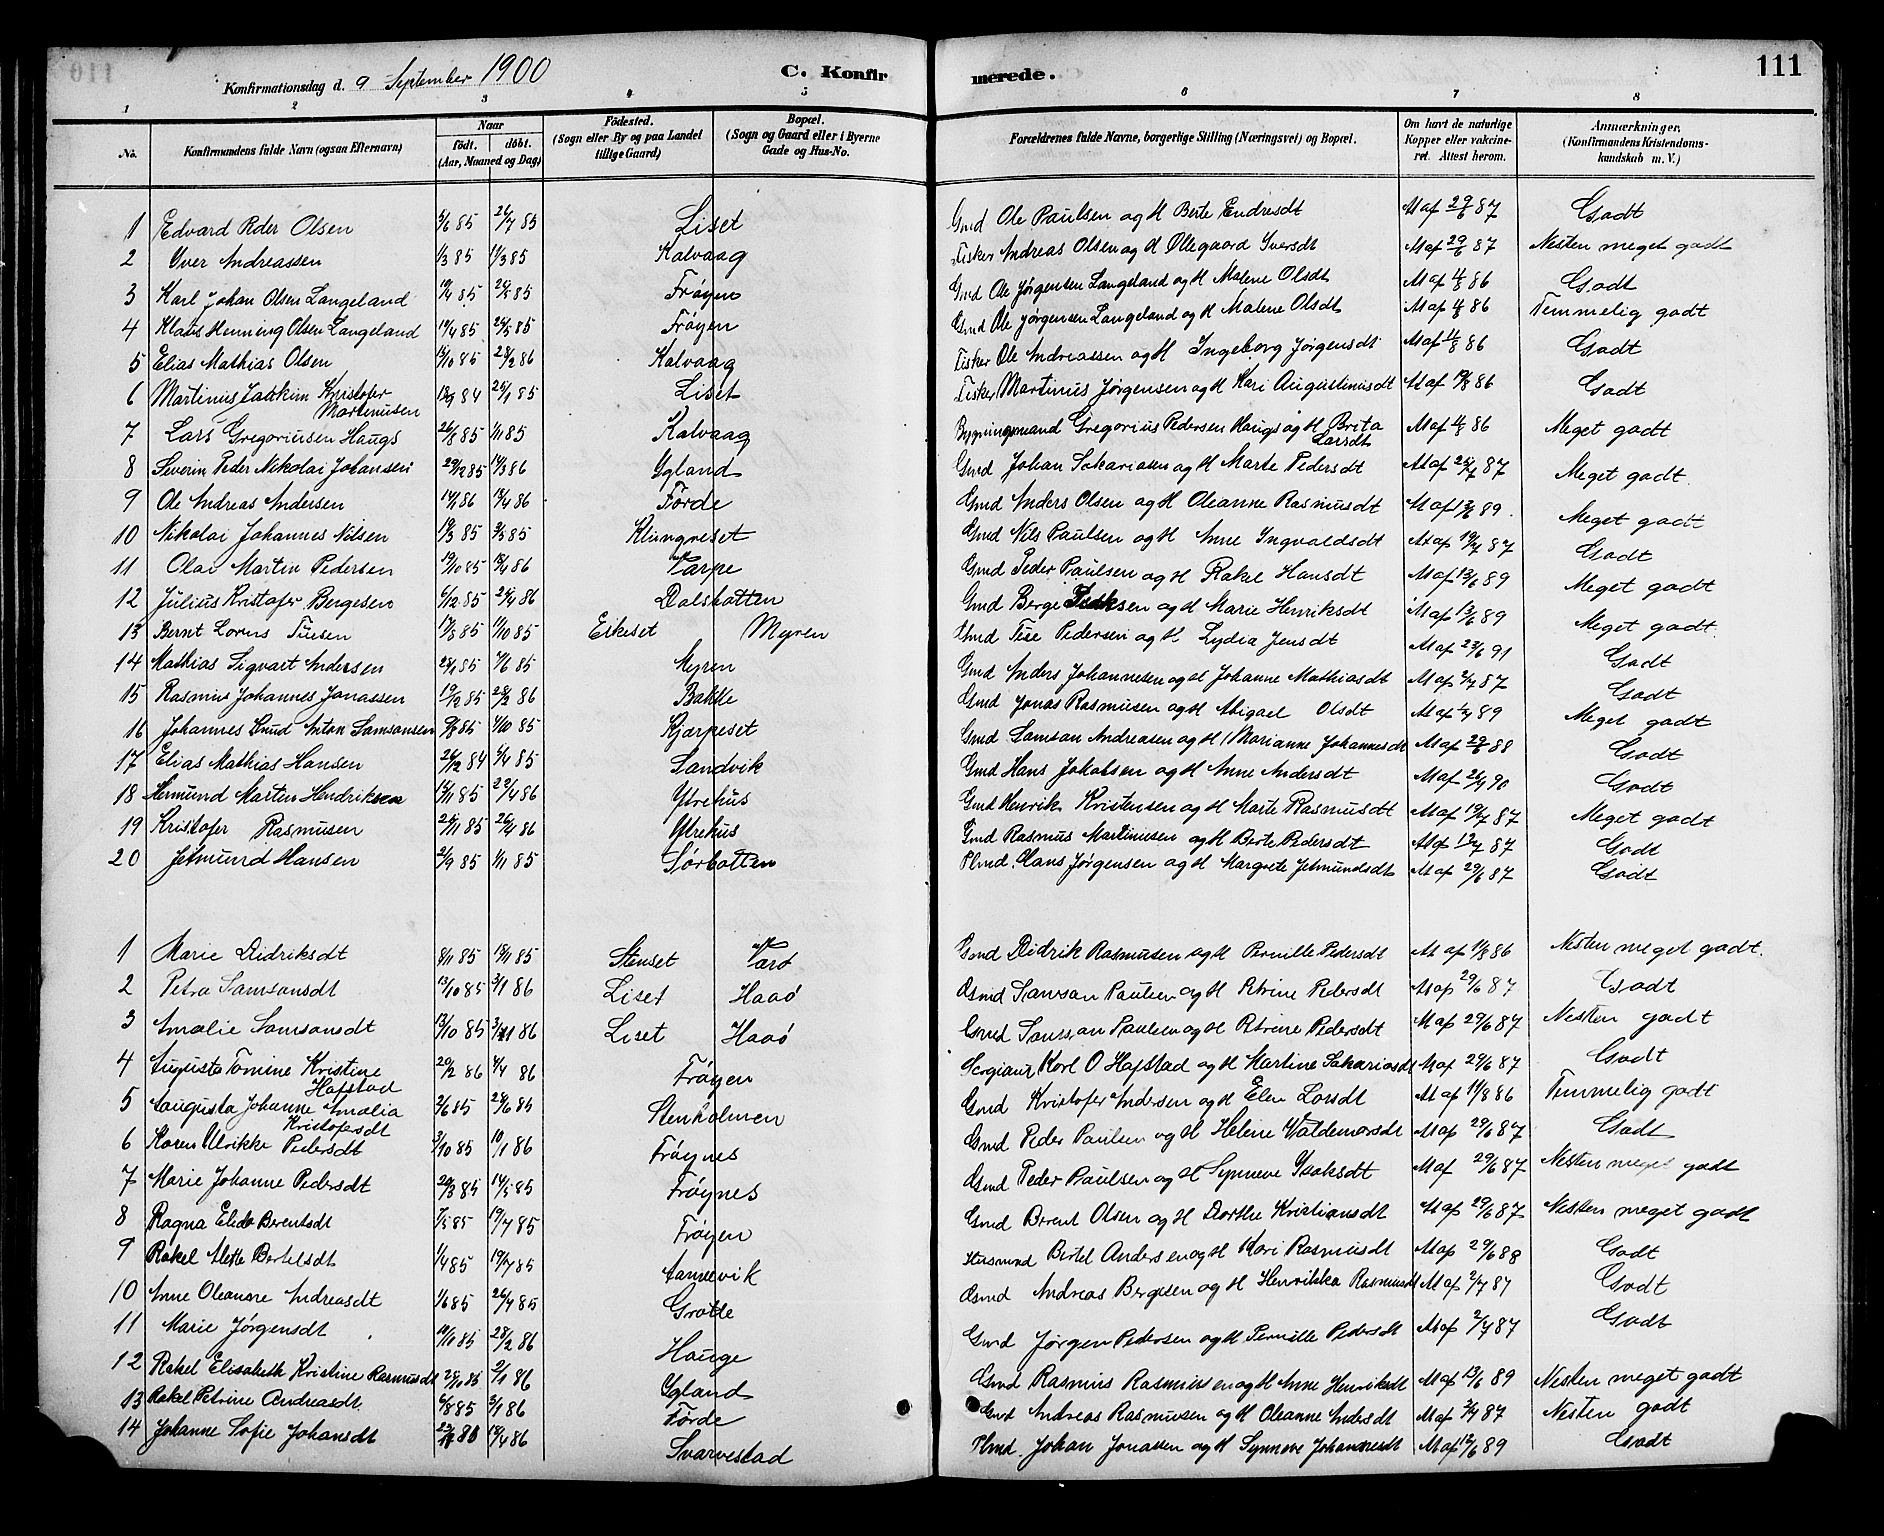 111
Konfirmationsdag d. 9 September 1900 C. Konfirmerede.
1 2 3 4 5 6 7 8
No. Konfirmandens fulde Navn (ogsaa Efternavn) Naar födt. döbt. (Aar, Maaned og Dag) Födested. (Sogn eller By og paa Landet tillige Gaard) Bopæl. (Sogn og Gaard eller i Byerne Gade og Hus-No. Forældrenes fulde Navne, borgerlige Stilling (Næringsvei) og Bopæl. Om havt de naturlige Kopper eller vakcineret. Attest herom. Anmærkninger, (Konfirmandens Kristendomskundskab m. V.)
1 Edvard Peder Olsen 5/6 85 26/7 85 Liset Gmd Ole Paulsen og H Berte Endresdt M af 29/6 87 Godt
2 Yver Andreassen 1/3 85 11/3 85 Kalvaag Fisker Andreas Olsen og H Ollegaard Iversdt M af 29/6 87 Nesten meget godt
3 Karl Johan Olsen Langeland 19/4 85 25/5 85 Fröyen Gmd Ole Jørgensen Langeland og H Malene Olsdt M af 4/8 86 Godt
4 Klaus Henning Olsen Langeland 19/4 85 25/5 85 Fröyen Gmd Ole Jørgensen Langeland og H Malene Olsdt M af 4/8 86 Temmelig godt
5 Elias Mathias Olsen 15/10 85 28/2 86 Kalvaag Fisker Ole Andreassen og H Ingeborg Jørgensdt M af 11/8 86 Godt
6 Martinus Joakim Kristofer Martinusen 84 25/1 85 Liset Fisker Martinus Jørgensen og H Kari Augustinusdt M af 19/8 86 Godt
7 Lars Gregoriusen Haugs 26/8 85 1/11 85 Kalvaag Bygningsmand Gregorius Pedersen Haugs og H Brita Larsdt M af 4/8 86 Meget godt
8 Severin Peder Nikolai Johansen 29/12 85 14/3 86 Ygland Gmd Johan Sakariasen og H Marte Pedersdt M af 87 Meget godt
9 Ole Andreas Andersen 14/1 86 18/4 86 Förde Gmd Anders Olsen og H Oleanne Rasmusdt M af 13/6 89 Meget godt
10 Nikolai Johannes Nilsen 19/3 85 85 Klungreset Gmd Nils Paulsen og H Anne Ingvaldsdt M af 19/7 87 Godt
11 Olai Martin Pedersen 19/10 85 18/4 86 Varpe Gmd Peder Paulsen og H Rakel Hansdt M af 13/6 89 Meget godt
12 Julius Kristofer Bergesen 6/12 85 26/4 86 Dalsbotten Gmd Berge Isaksen og H Marie Henriksdt M af 13/6 89 Meget godt
13 Bernt Lorens Tiesen 17/8 85 11/10 85 Eikeset Myren Gmd Tise Pedersen og H Lydia Jensdt M af 23/6 91 Godt
14 Mathias Sigvart Andersen 28/1 85 7/6 85 Myren Gmd Anders Johannesen og H Johanne Mathiasdt M af 2/7 87 Godt
15 Rasmus Johannes Jonassen 19/12 85 28/2 86 Bakke Gmd Jonas Rasmusen og H Abigael Olsdt M af 1/7 89 Meget godt
16 Johannes Knud Anton Samsonsen 85 4/10 85 Kjerpeset Gmd Samson Andreasen og H Marianne Johannesdt M af 29/6 88 Godt
17 Elias Mathias Hansen 26/12 84 5/4 85 Sandvik Gmd Hans Jakobsen og H Anne Andersdt M af 26/7 90 Godt
18 Hermund Martin Hendriksen 15/11 85 27/4 86 Ytrehus Gmd Henrik Kristensen og H Marte Rasmusdt M af 19/7 87 Meget godt
19 Kristofer Rasmusen 25/11 85 26/4 86 Ytrehus Gmd Rasmus Martinusen og H Berte Pedersdt M af 12/7 87 Godt
20 Jetmund Hansen 2/9 85 1/11 85 Sörbotten Plmd. Hans Jørgensen og H Margrete Jetmundsdt M af 29/6 87 Godt
1 Marie Didriksdt 8/11 85 18/11 85 Stenset Varö Gmd Didrik Rasmusen og H Pernille Pedersdt M af 11/8 86 Nesten meget godt.
2 Petra Samsonsdt 13/10 85 3/1 86 Liset Haaö Gmd Samson Paulsen og H Petrine Pedersdt M af 29/6 87 Godt
3 Amalie Samsonsdt 13/10 85 3/1 86 Liset Haaö Gmd Samson Paulsen og H Petrine Pedersdt M af 29/6 87 Nesten godt
4 Augusta Tomine Kristine Hafstad 20/2 86 4/4 86 Fröyen Sergiant Karl O Hafstad og H Martine Sakariasdt M af 29/6 87 Godt
5 Augusta Johanne Amalia Kristofersdt 2/6 85 28/6 85 Stenholmen Gmd Kristofer Andersen og H Elen Larsdt M af 11/8 86 Temmelig godt
6 Karen Ulrikke Pedersdt 3/10 85 10/1 86 Fröynes Gmd Peder Paulsen og H Helene Waldemarsdt M af 29/6 87 Godt
7 Marie Johanne Pedersdt 20/3 85 14/5 85 Fröynes Gmd Peder Paulsen og H Synneve Ysaksdt M af 29/6 87 Nesten meget godt
8 Ragna Elida Berentsdt 7/5 85 19/7 85 Fröyen Gmd Berent Olsen og H Dorthe Kristiansdt M af 29/6 87 Nesten meget godt
9 Rakel Mette Bertelsdt 1/4 85 19/7 85 Husmand Bertel Andersen og H Kari Rasmusdt M af 29/6 88 Godt
10 Anne Oleanne Andreasdt 1/6 85 26/7 85 Grotle Gmd Andreas Bergesen og H Henrikka Rasmusdt M af 2/7 87 Godt
11 Marie Jørgensdt 10/11 85 28/2 86 Hauge Gmd Jørgen Pedersen og H Pernille Pedersdt M af 2/7 87 Godt
12 Rakel Elisabeth Kristine Rasmusdt 25/10 85 2/1 86 Ygland Gmd Rasmus Rasmussen og H Anne Henriksdt M af 13/6 89 Nesten meget godt
13 Rakel Petrine Andreasdt. 6/8 85 3/1 86 Förde Gmd Andreas Rasmusen og H Oleanne Andersdt M af 2/7 87 Nesten godt
14 Johanne Sofie Johansdt 18/4 86 Svarvestad Plmd. Johan Jonassen og H Synneve Johannesdt M af 12/6 89 Godt